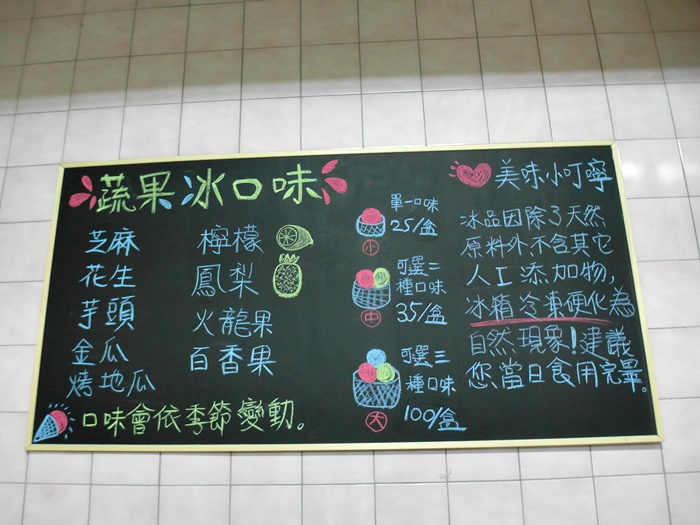 蔬果冰口味
芝麻
花生
芋頭
金瓜
烤地瓜
檸檬
鳳梨
火龍果
百香果
口味會依季節變動。
單一口味
25/盒
小
可選二
種口味
35/盒
中
可選三
種口味
100/盒
大
美味小叮嚀
冰品因除了天然
原料外,不含其它
人工添加物,
冰箱冷凍硬化為
自然現象!建議
您當日食用完畢。